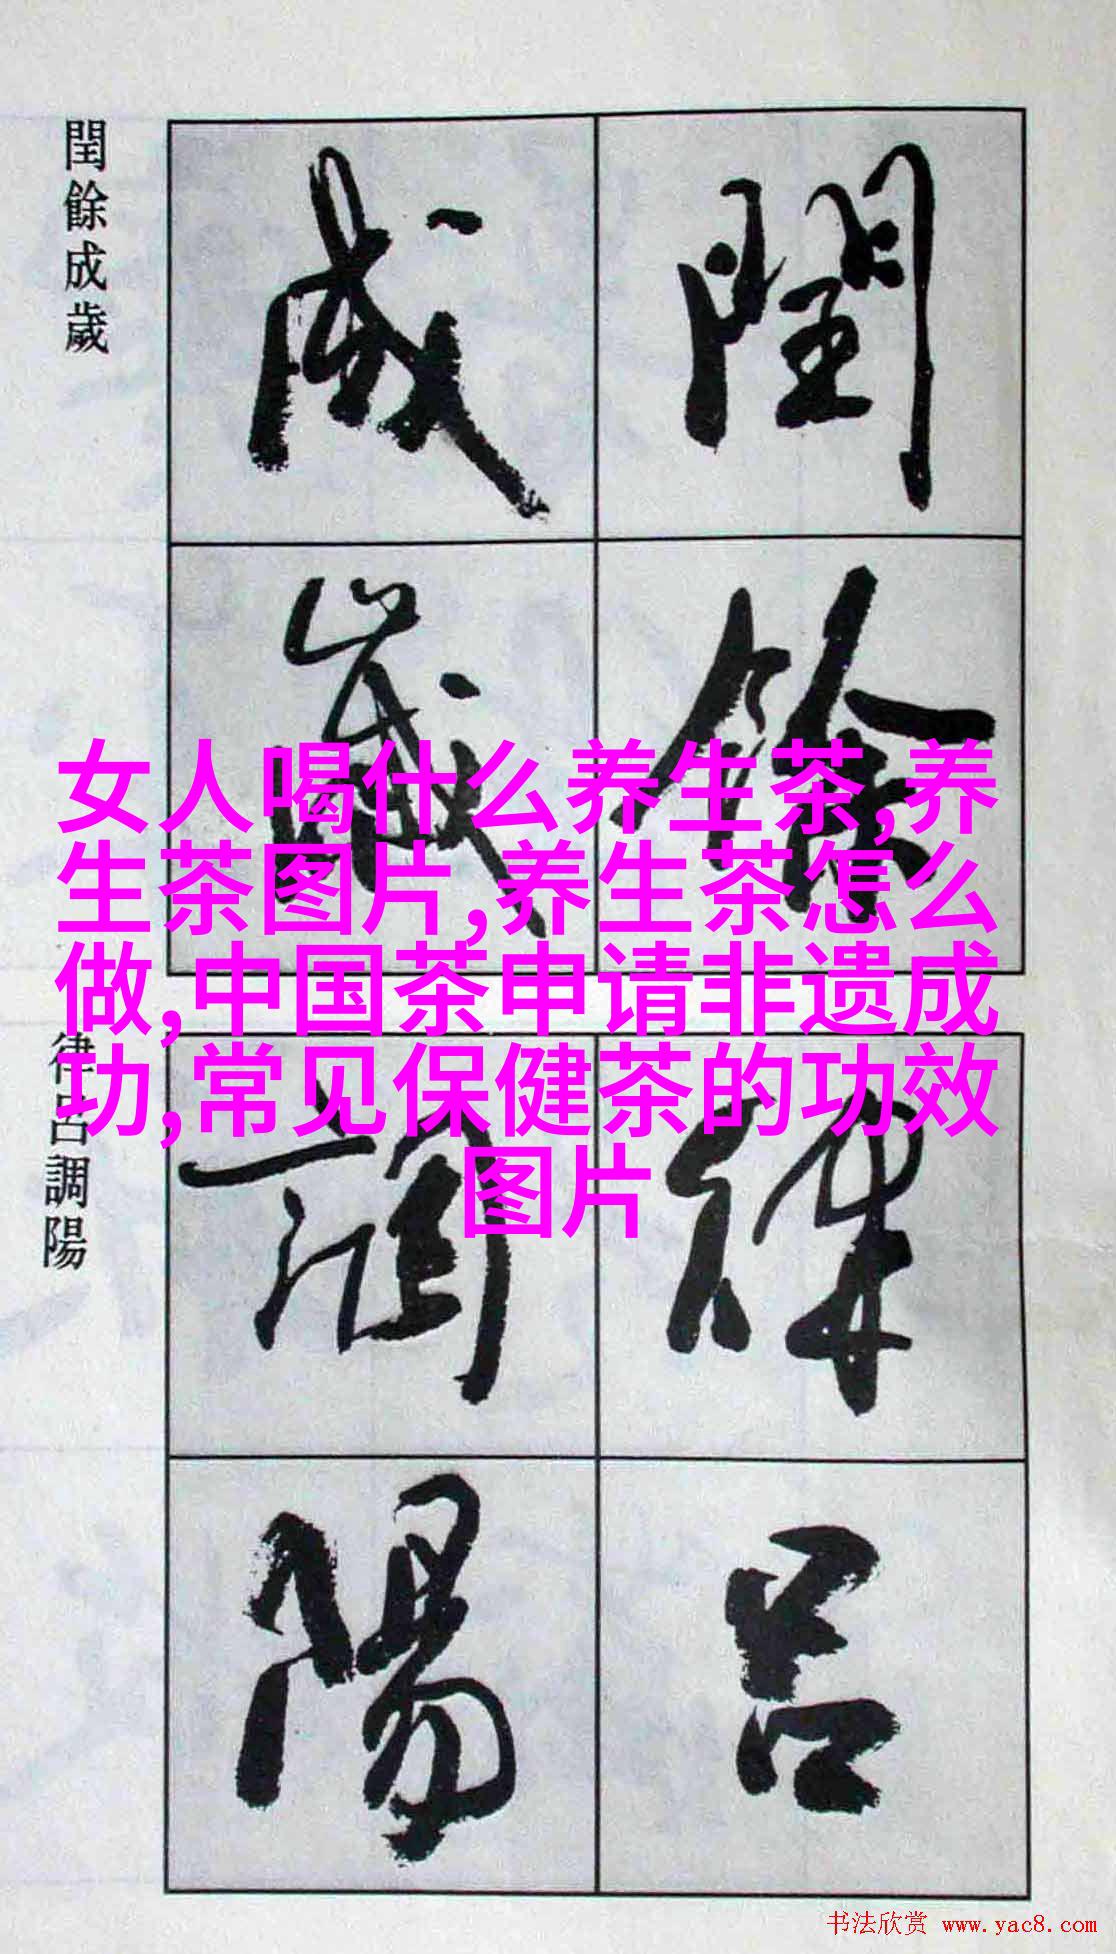 閏餘
成歲
閏餘成歲
女人喝什么养生茶,养
生茶图片,养生茶怎么
做,中国茶申请非遗成
功,常见保健茶的功效
图片
律呂
調陽
律呂調陽
书法欣赏 www.yac8.com